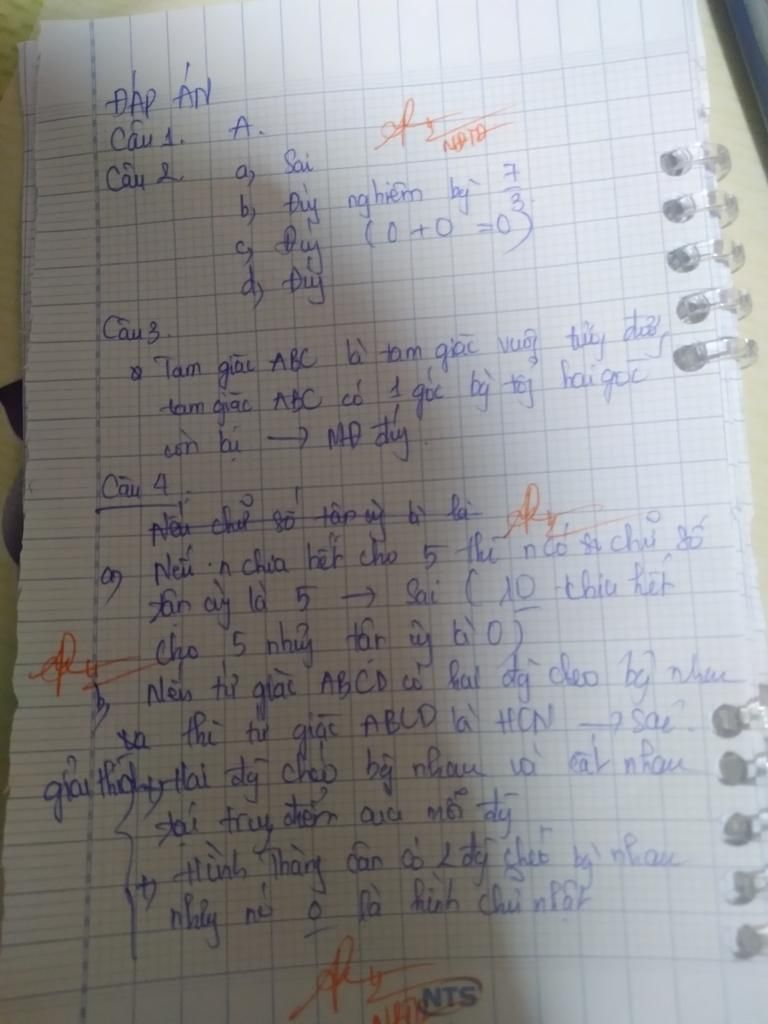 ĐÁP ÁN
Câu 1. A.
NĐTĐ
Câu 2 a, Sai
b, Đúg nghiệm bg 7/3
c, Đúg (0 + 0 = 0)
d, Đúg
Câu 3.
Tam giác ABC là tam giác vuôg tươg đươg
tam giác ABC có 1 góc bg tổg hai góc
còn lại → MĐ đúg.
Câu 4.
Nếu chữ số tận cùg là là
a, Nếu n chia hết cho 5 thì n có chữ số
tận cùg là 5 → Sai (10 chia hết
cho 5 nhưg tận cùg là 0)
b, Nếu tứ giác ABCD có hai đg chéo bg nhau
thì tứ giác ABCD là HCN → Sai
giải thích + Hai đg chéo bg nhau và cắt nhau
tại trug điểm của mỗi đg
+ Hình thang cân có 2 đg chéo bg nhau
nhưg nó 0 là hình chữ nhật
NTS